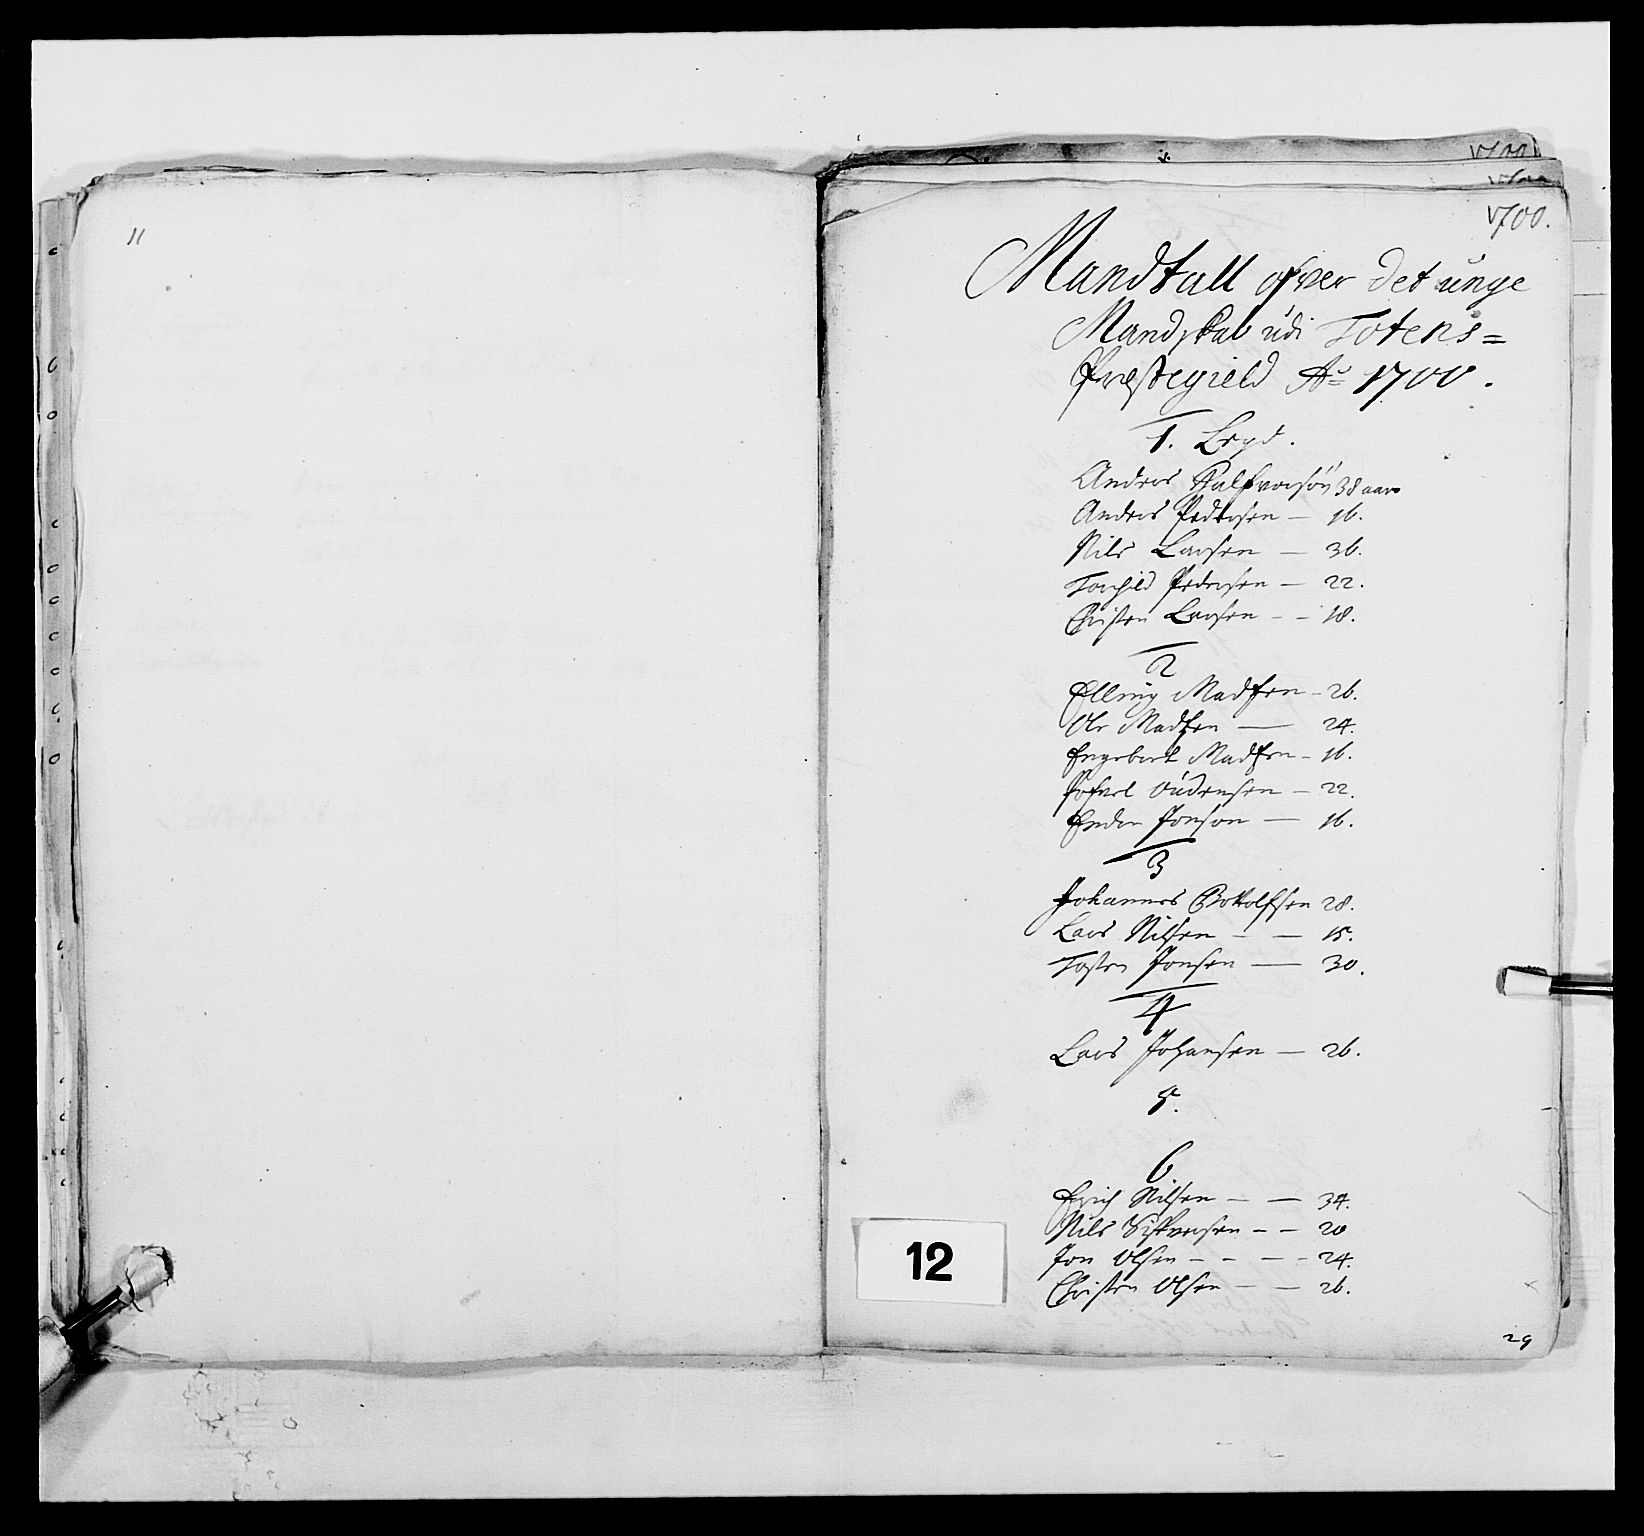 11
1700.
Mandtall ofver det unge
Mandskab udi Totens=
Præstegield Ao 1700.
1. Legd.
Anders Halfvorsøn 38 aar
Anders Pedersen — 16.
Nils Larsen — 36.
Torchild Pedersen — 22.
Christen Larsen – – 18.
2
Elling Madsen – 26.
Ole Madsen — 24.
Engebret Madsen – 16.
Oudensen – 22.
Endre Jonson — 16.
3
Johannes Bottolfsen 28.
Lars Nilsen – — 15.
Tosten Jonsen — 30.
4
Lars Johansen — 26.
5.
6
Erich Nilsen – — 34.
Nils – – 20
Jon Olsen – – – – 24.
Christen Olsen – — 26.
12
29